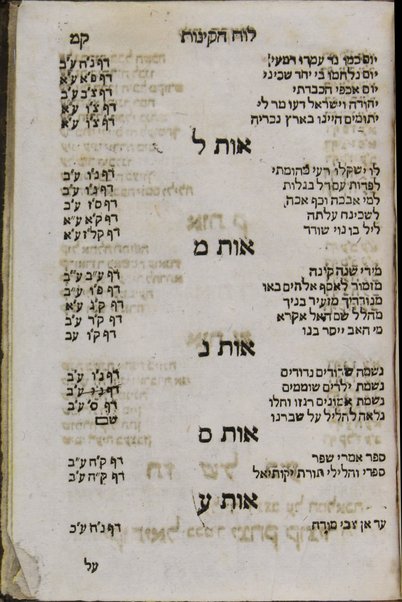 לוח הקינות קמ
יום נלחמו בי יחד שכיני דף פ״א ע״א
יום אכפי הכבדתי דף צ״ב ע״ב
יהודה וישראל דעו מר לי דף צ״ו ע״א
יתומים היינו בארץ נכריה דף צ״ו ע״א
אות ל
לו ישקלו רעי מהומתי דף נ״ו ע״ב
לפרות עם דל בגלות דף נ״ו ע״ב
למי אבכה וכף אכה דף ס״ו ע״ב
לשכינה עלתה דף ק״א ע״א
ליל בו נוי שודד דף קל״ו ע״א
אות מ
מידי שנה קינה דף ע״ב ע״ב
מזמור לאסף אלהים באו דף פ״ו ע״ב
מנודיך מזעיר בניך דף ק״ג ע״א
מהלל שמואל אקרא דף ק״ד ע״ב
מי האב ייסר בנו דף ק״ו עב
אות נ
נשמת שדודים נדודים דף נ״ו ע״ב
נשמת ילדים שוממים דף נ״ו ע״ב
נשמת אמונים רגזו וחלו דף ס׳ ע״ב
נלאה להליל על שברנו שם
אות ס
ספר אמרי שפר דף ק״ח ע״ב
ספדי והלילי תורת יקותיאל דף ק״ח ע״ב
אות ע
עד אן צבי מודח דף נ״ח ע״ב
על